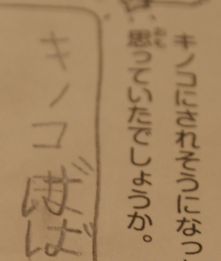 キノコにされそうになっ
思っていたでしょうか。
キノコばば